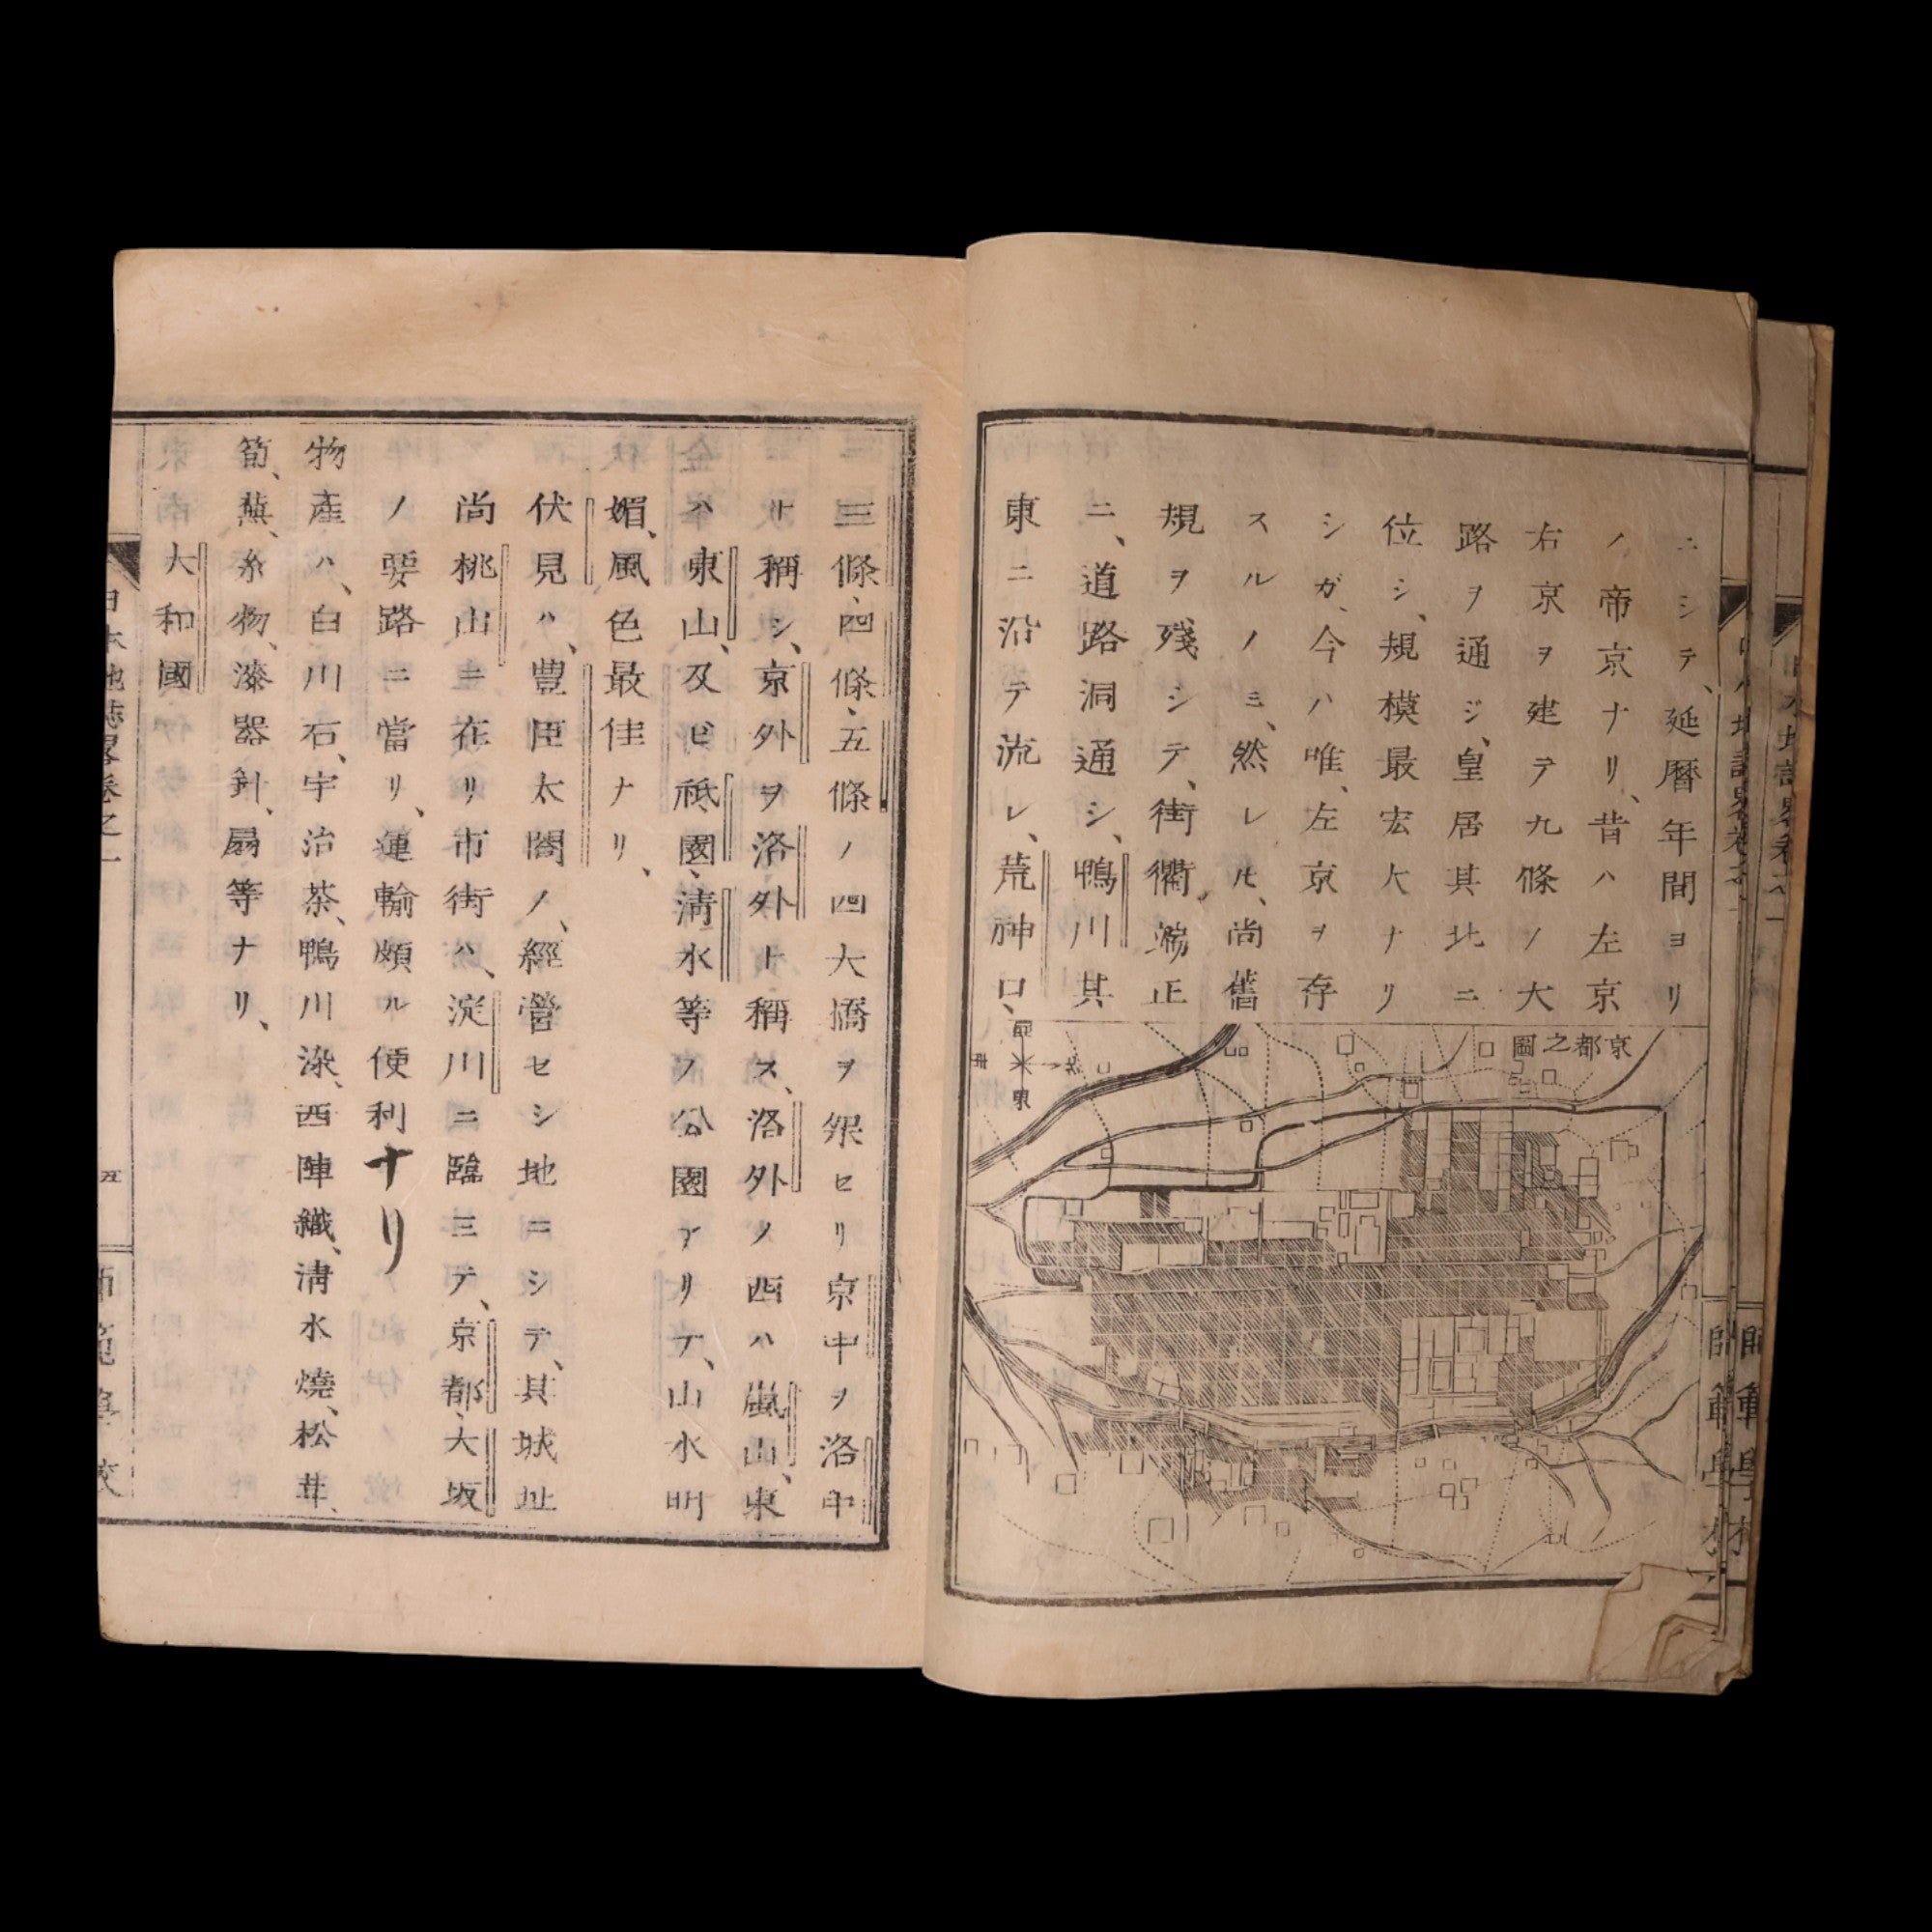 ニシテ、延暦年間ヨリ
ノ帝京ナリ、昔ハ左京
右京ヲ建テ九條ノ大
路ヲ通ジ、皇居其北ニ
位シ、規模最宏大ナリ
シガ、今ハ唯、左京ヲ存
スルノミ、然レ𪜈、尚舊
規ヲ残シテ、街衢端正
ニ、道路洞通シ、鴨川其
東ニ沿テ流レ、荒神口、
京都之圖
西
北
東
南
三條、四條、五條ノ四大橋ヲ架セリ京中ヲ洛中
ト稱シ、京外ヲ洛外ト稱ス、洛外ノ西ハ嵐山、東
ハ東山、及ビ祇園、清水等ノ公園アリテ、山水明
媚、風色最佳ナリ、
伏見ハ、豊臣太閤ノ、經營セシ地ニシテ、其城址
尚桃山ニ在リ市街ハ、淀川ニ臨ミテ、京都、大坂
ノ要路ニ當リ、運輸頗ル便利ナリ
物產ハ、白川石、宇治茶、鴨川染、西陣織、清水燒、松茸、
筍、蕪、糸物、漆器、針、扇等ナリ、
大和國
日本地誌畧卷之一
五
師範學校